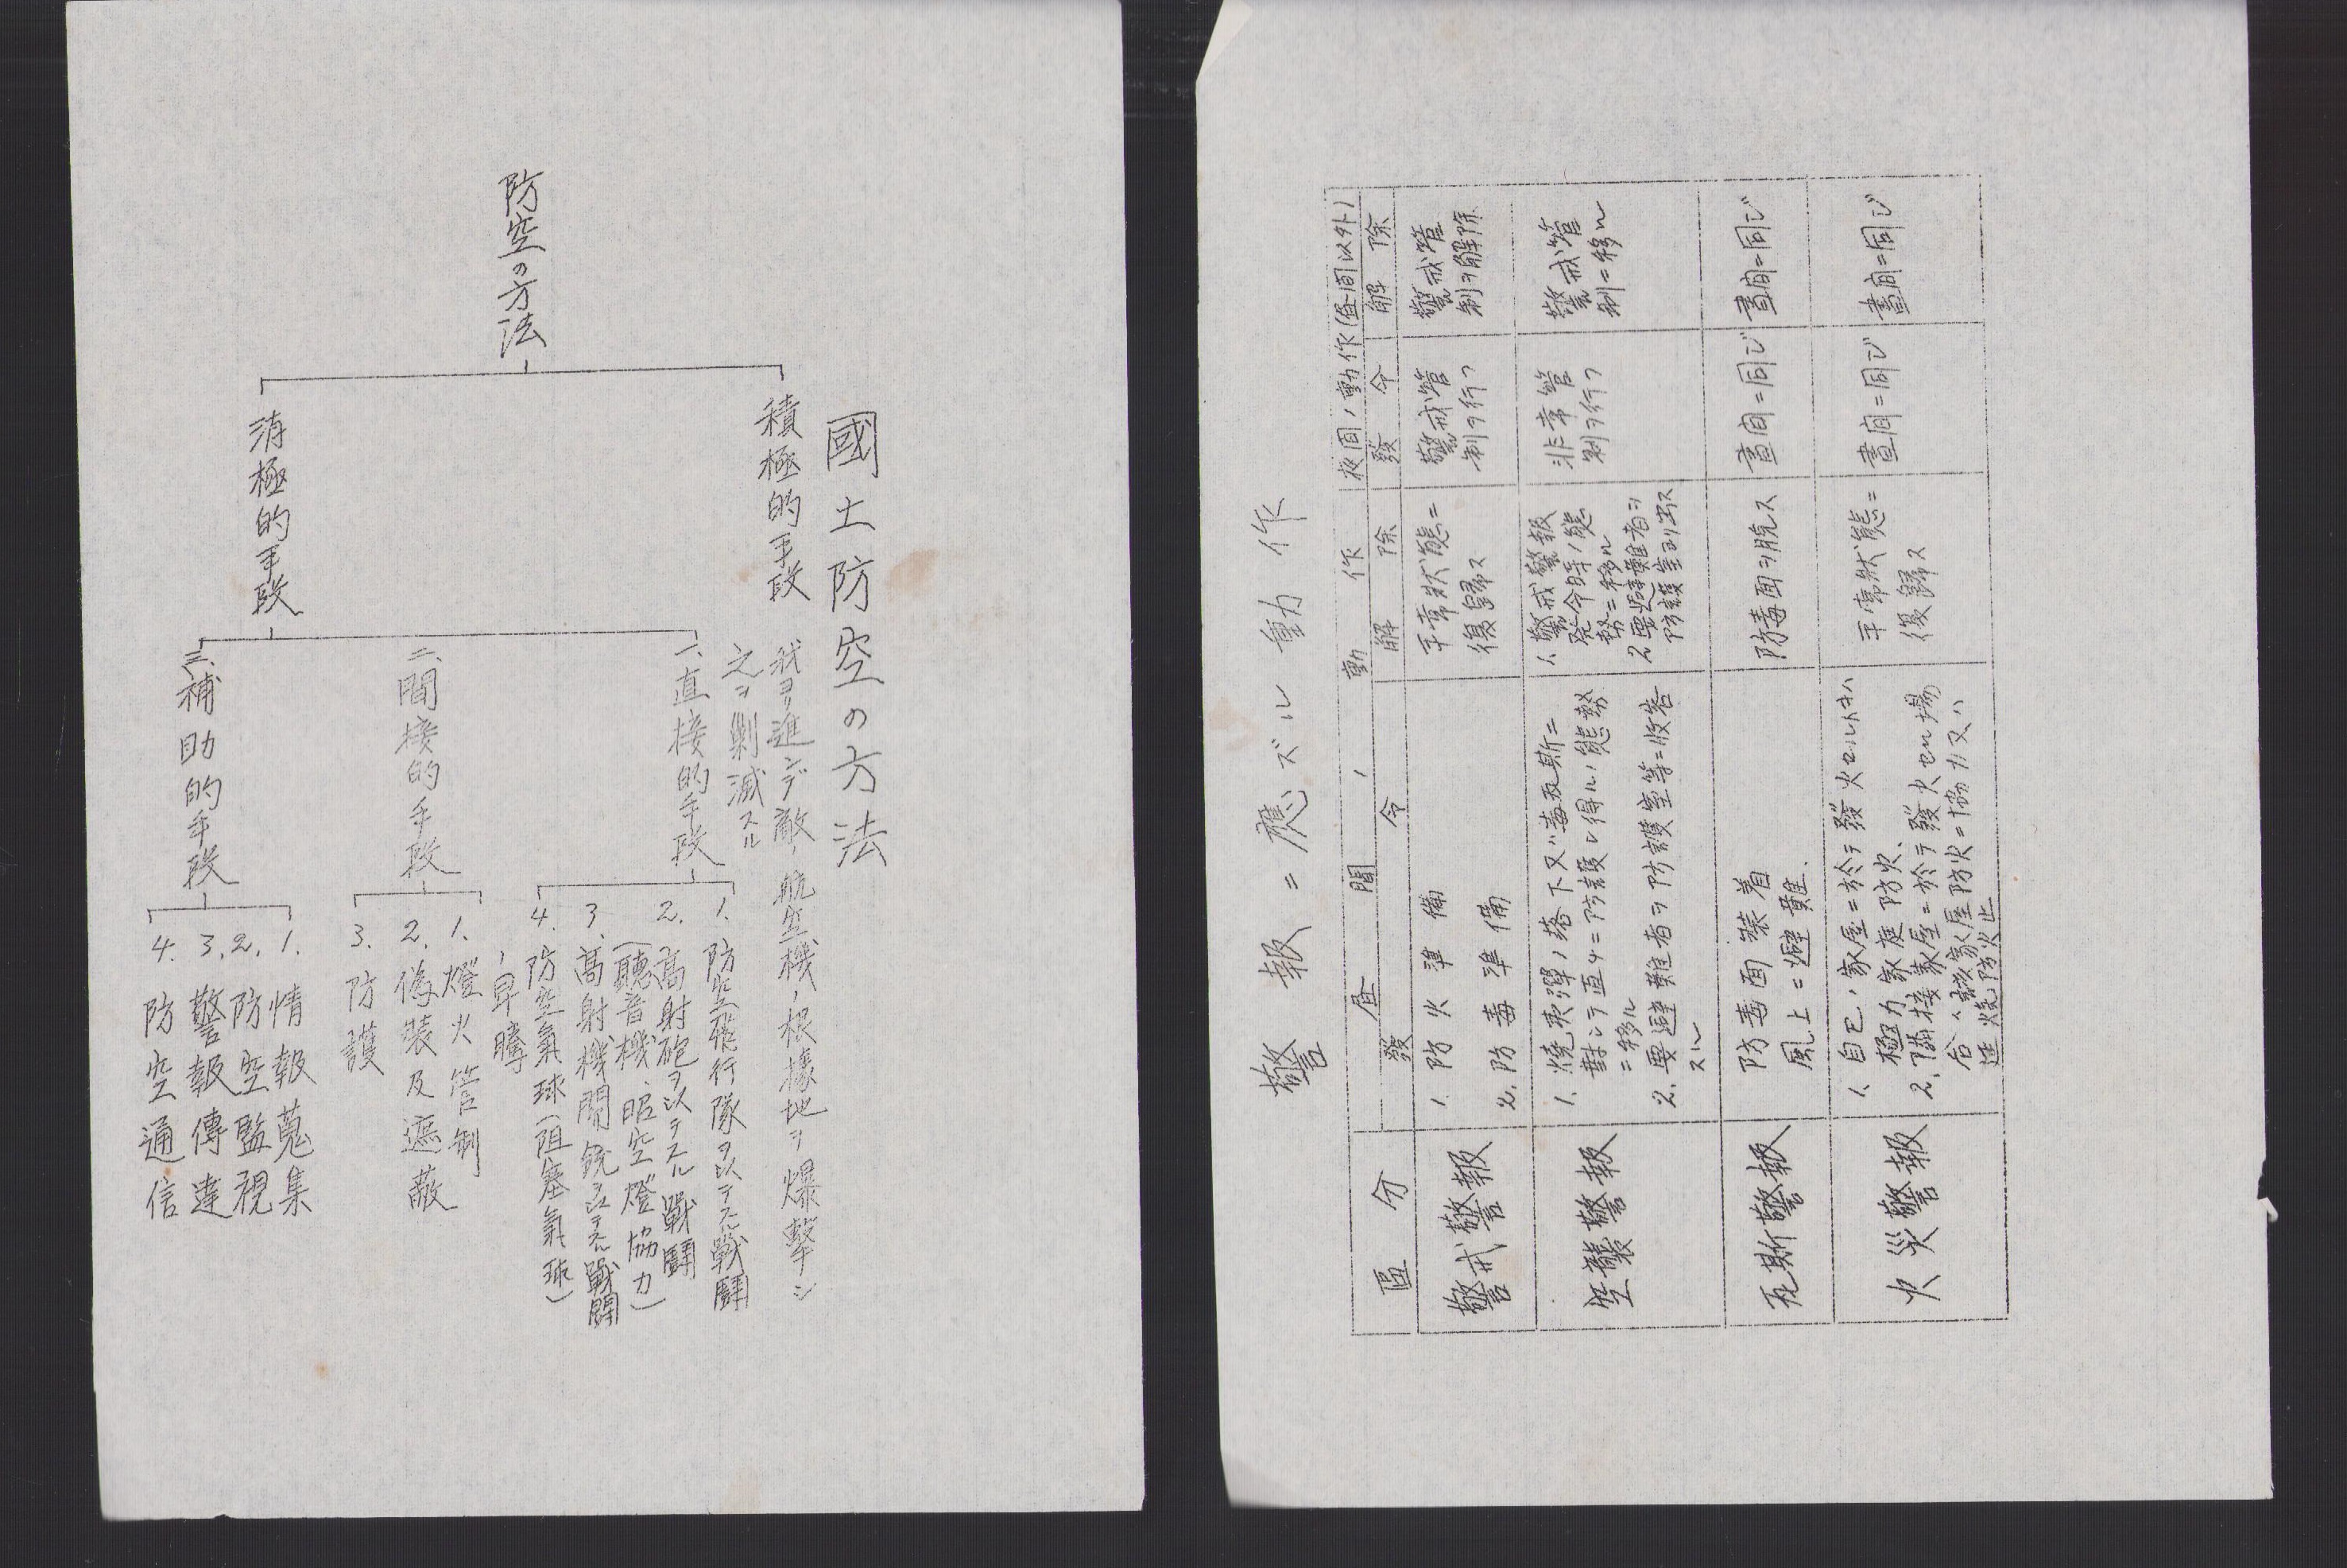 國土防空の方法
防空の方法
積極的手段
我ヨリ進ンデ敵ノ航空機ノ根據地ヲ爆撃シ
之ヲ剿滅スル
消極的手段
一、直接的手段
1. 防空飛行隊ヲ以テスル戰鬪
2. 高射砲ヲ以テスル戰鬪
(聽音機、照空燈協力)
3. 高射機關銃ヲ以テスル戰鬪
4. 防空氣球(阻塞氣球)
ノ昇騰
二、間接的手段
1. 燈火管制
2. 偽裝及遮蔽
3. 防護
三、補助的手段
1. 情報蒐集
2. 防空監視
3. 警報傳達
4. 防空通信
警報ニ應ズル動作
區分
晝間ノ動作
夜間ノ動作(晝間以外)
發令
解除
發令
解除
警戒警報
1. 防火準備
2. 防毒準備
平常狀態ニ
復歸ス
警戒管
制ヲ行フ
警戒管
制ヲ解除
空襲警報
1. 燒夷彈ノ落下又ハ毒瓦斯ニ
對シテ直チニ防護シ得ルノ態勢
ニ移ル
2. 要避難者ヲ防護室等ニ收容
スル
1. 警戒警報
發令時ノ態
勢ニ移ル
2. 要避難者ヲ
防護室ヨリ出ス
非常管
制ヲ行フ
警戒管
制ニ移ル
瓦斯警報
防毒面裝着
風上ニ避難
防毒面ヲ脱ス
晝間ニ同ジ
晝間ニ同ジ
火災警報
1. 自己ノ家屋ニ於テ發火セルトキハ
極力家庭防火、
2. 隣接家屋ニ於テ發火セル場
合ハ該家屋防火ニ協力又ハ
延燒防火止
平常狀態ニ
復歸ス
晝間ニ同ジ
晝間ニ同ジ